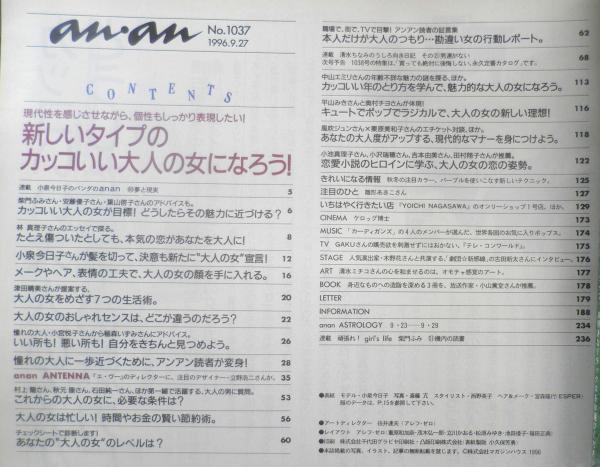 an・an
No.1037
1996.9.27
CONTENTS
現代性を感じさせながら、個性もしっかり表現したい!
新しいタイプの
カッコいい大人の女になろう!
連載 小泉今日子のパンダのanan ㊴夢と現実 5
柴門ふみさん・安藤優子さん・葉山朗子さんのアドバイスも。
カッコいい大人の女が目標! どうしたらその魅力に近づける? 6
林 真理子さんのエッセイで探る。
たとえ傷ついたとしても、本気の恋があなたを大人に! 8
小泉今日子さんが髪を切って、決意も新たに"大人の女"宣言! 12
メークやヘア、表情の工夫で、大人の女の顔を手に入れる。 16
津田晴美さんが提案する、
大人の女をめざす7つの生活術。 20
大人の女のおしゃれセンスは、どこが違うのだろう? 22
憧れの大人・小宮悦子さんから稲森いずみさんにアドバイス。
いい所も! 悪い所も! 自分をきちんと見つめよう。 26
憧れの大人に一歩近づくために、アンアン読者が変身! 28
anan ANTENNA 「エ・ヴー」のディレクターに、注目のデザイナー・立野浩二さんが。 35
村上 龍さん、秋元 康さん、石田純一さん、ほか第一線で活躍する、大人の男に質問。
これからの大人の女に、必要な条件は? 53
大人の女は忙しい! 時間やお金の賢い節約術。 56
チェックシートで診断します!
あなたの"大人の女"のレベルは? 60
職場で、街で、TVで目撃! アンアン読者の証言集
本人だけが大人のつもり…勘違い女の行動レポート。 62
連載 清水ちなみのうしろ向き日記 その㉑男運がない 68
次号予告 1038号の特集は、「買っても絶対に後悔しない、永久定番カタログ」です。
中山エミリさんの年齢不詳な魅力の謎を探る、ほか。
カッコいい年のとり方を学んで、魅力的な大人の女になろう。 113
平山みきさんと奥村チヨさんが体現!
キュートでポップでラジカルで、大人の女の新しい理想! 116
風吹ジュンさん×栗原美和子さんのエチケット対談、ほか。
あなたの大人度がアップする、現代的なマナーを身につけよう。 118
小池真理子さん、小沢瑞穂さん、吉本由美さん、田村翔子さんが推薦。
恋愛小説のヒロインに学ぶ、大人の女の恋の姿勢。 122
きれいになる情報 秋冬の注目カラー、パープルを使いこなす新しいテクニック。 125
注目のひと 雛形あきこさん 127
いちはやく行きたい店 「YOICHI NAGASAWA」のオンリーショップ1号店、ほか。 129
CINEMA ケロッグ博士 173
MUSIC 「カーディガンズ」の4人のメンバーが選んだ、世界各国のお気に入りポップス。 174
TV GAKUさんの購売欲を刺激せずにはおかない、「テレ・コンワールド」。 175
STAGE 人気演出家・木野花さんと共演する、「劇団☆新感線」の古田新太さんにインタビュー。 176
ART 清水ミチコさんの心を和ませるのは、オモチャ感覚のアート。 177
BOOK 身近なものへの造詣を深める3冊を、放送作家・小山薫堂さんが推薦。 178
LETTER 179
INFORMATION 188
anan ASTROLOGY 9・23——9・29 234
連載 頑張れ! girl's life 柴門ふみ ㊿機内の読書 236
●表紙 モデル・小泉今日子 写真・斎藤 亢 スタイリスト・西野英子 ヘア&メーク・宮森隆行(ESPER)
服のデータは、P.15を参照して下さい。
●アートディレクター 住井達夫(アレフ・ゼロ)
●印刷 株式会社千代田グラビヤ印刷社・凸版印刷株式会社
●本誌掲載の写真、イラスト、記事の無断転載を禁じます。©株式会社マガジンハウス 1996